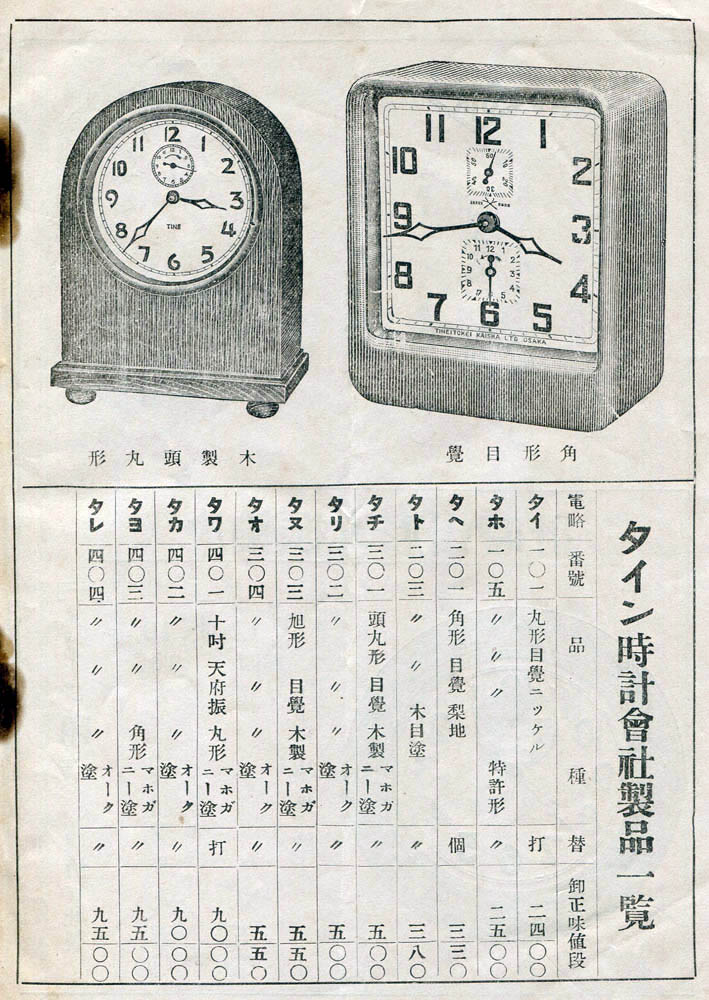 12
1
2
3
4
5
6
7
8
9
10
11
TINE
木製頭丸形
12
1
2
3
4
5
6
7
8
9
10
11
TINEITOKEI KAISHA LTD OSAKA
角形目覺
タイン時計會社製品一覽
電略 番號 品種 替 卸正味値段
タイ 一〇一 丸形目覺ニッケル 打 二四〇〇
タホ 一〇五 〃 〃 〃 特許形 〃 二五〇〇
タヘ 二〇一 角形 目覺 梨地 個 三三〇
タト 二〇三 〃 〃 木目塗 〃 三八〇
タチ 三〇一 頭丸形 目覺 木製 マホガニー塗 〃 五〇〇
タリ 三〇二 〃 〃 〃 オーク塗 〃 五〇〇
タヌ 三〇三 旭形 目覺 木製 マホガニー塗 〃 五五〇
タオ 三〇四 〃 〃 〃 オーク塗 〃 五五〇
タワ 四〇一 十吋 天府振 丸形 マホガニー塗 打 九〇〇〇
タカ 四〇二 〃 〃 〃 オーク塗 〃 九〇〇〇
タヨ 四〇三 〃 〃 角形 マホガニー塗 〃 九五〇〇
タレ 四〇四 〃 〃 〃 オーク塗 〃 九五〇〇